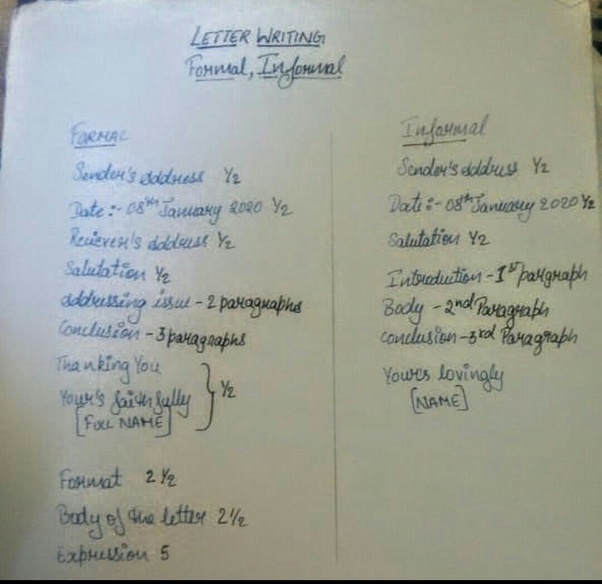 LETTER WRITING
Formal, Informal
FORMAL
Sender's address ½
Date :- 08th January 2020 ½
Reciever's address ½
Salutation ½
addressing issue - 2 paragraphs
Conclusion - 3 paragraphs
Thanking You
Your's faithfully ½
[Full NAME]
Format 2 ½
Body of the letter 2 ½
Expression 5
Informal
Sender's address ½
Date :- 08th January 2020 ½
Salutation ½
Introduction - 1st pargraph
Body - 2nd Paragraph
Conclusion - 3rd Paragraph
Your's lovingly
[NAME]